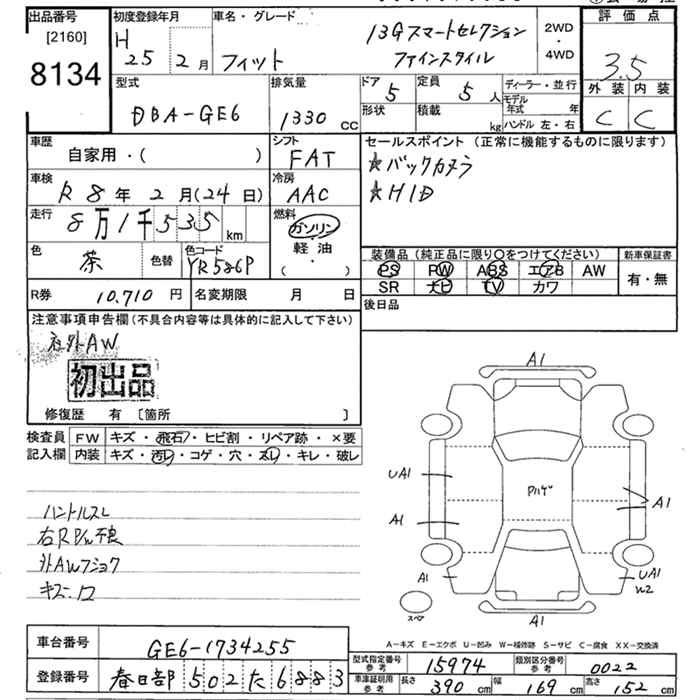 出品番号
[2160]
8134
初度登録年月
H
25 2月
車名・グレード
フィット
13Gスマートセレクション
ファインスタイル
2WD
・
4WD
評価点
3.5
外装 内装
C C
型式
DBA-GE6
排気量
1330 CC
ドア 5
形状
定員 5 人
積載 kg
ディーラー・並行
モデル年式 年
ハンドル 左・右
車歴
自家用・( )
シフト
FAT
車検
R8年2月(24日)
冷房
AAC
走行
8万1千535 km
燃料
ガソリン
軽油
( ・ )
色
茶
色替
色コード
YR586P
R券 10,710 円
名変期限 月 日
セールスポイント (正常に機能するものに限ります)
★バックカメラ
★HID
装備品 (純正品に限り○をつけてください)
PS PW ABS エアB AW
SR ナビ TV カワ
新車保証書
有・無
後日品
注意事項申告欄(不具合内容等は具体的に記入して下さい)
社外AW
初出品
修復歴 有 〔箇所 〕
検査員
記入欄
FW キズ・飛石・ヒビ割・リペア跡・×要
内装 キズ・汚レ・コゲ・穴・スレ・キレ・破レ
ハンドルスレ
右RP/W不良
外AWフショク
キズ
A1
UA1
A1
A1
Pルーゲ
A1
UA1
W2
A1
スペア
A-キズ E-エクボ U-凹み W-補修跡 S-サビ C-腐食 XX-交換済
車台番号 GE6-1734255
登録番号 春日部 502 た 6883
型式指定番号
参考
15974
類別区分番号
参考
0022
車庫証明用
参考
長さ 390 cm
幅 169 cm
高さ 152 cm